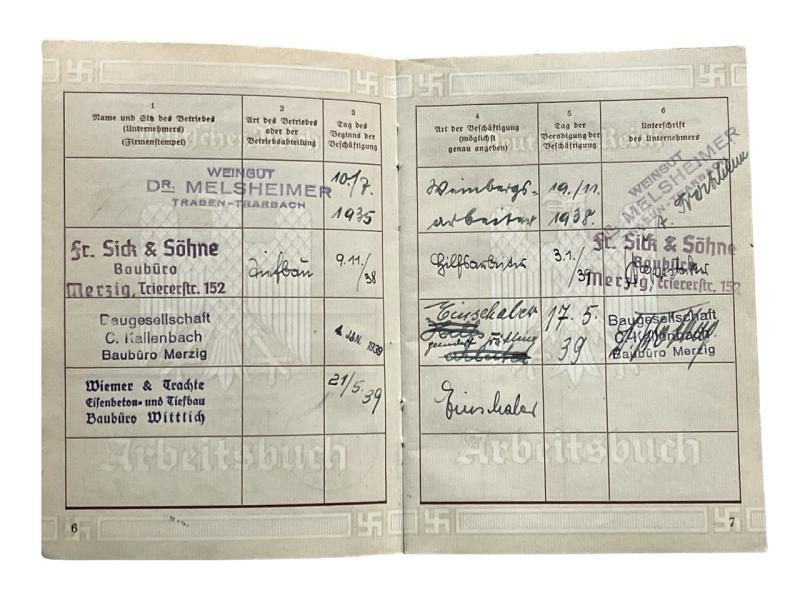 1
Name und Sitz des Betriebes
(Unternehmers)
(Firmenstempel)
2
Art des Betriebes
oder der
Betriebsabteilung
3
Tag des
Beginns der
Beschäftigung
WEINGUT
DR. MELSHEIMER
TRABEN-TRARBACH
10./7.
1935
Fr. Sick & Söhne
Baubüro
Merzig, Triererstr. 152
Tiefbau
9.11./
38
Baugesellschaft
C. Kallenbach
Baubüro Merzig
4. JAN. 1939
Wiemer & Trachte
Eisenbeton- und Tiefbau
Baubüro Wittlich
21/5.
39
Arbeitsbuch
6
4
Art der Beschäftigung
(möglichst
genau angeben)
5
Tag der
Beendigung der
Beschäftigung
6
Unterschrift
des Unternehmers
Weinbergs-
arbeiter
19./11.
1938.
WEINGUT
DR. MELSHEIMER
TRABEN-TRARBACH
Hilfsarbeiter
3.1./
39
Fr. Sick & Söhne
Baubüro
Merzig, Triererstr. 152
Einschaler
17.5.
39
Baugesellschaft
C. Kallenbach
Baubüro Merzig
Einschaler
Arbeitsbuch
7